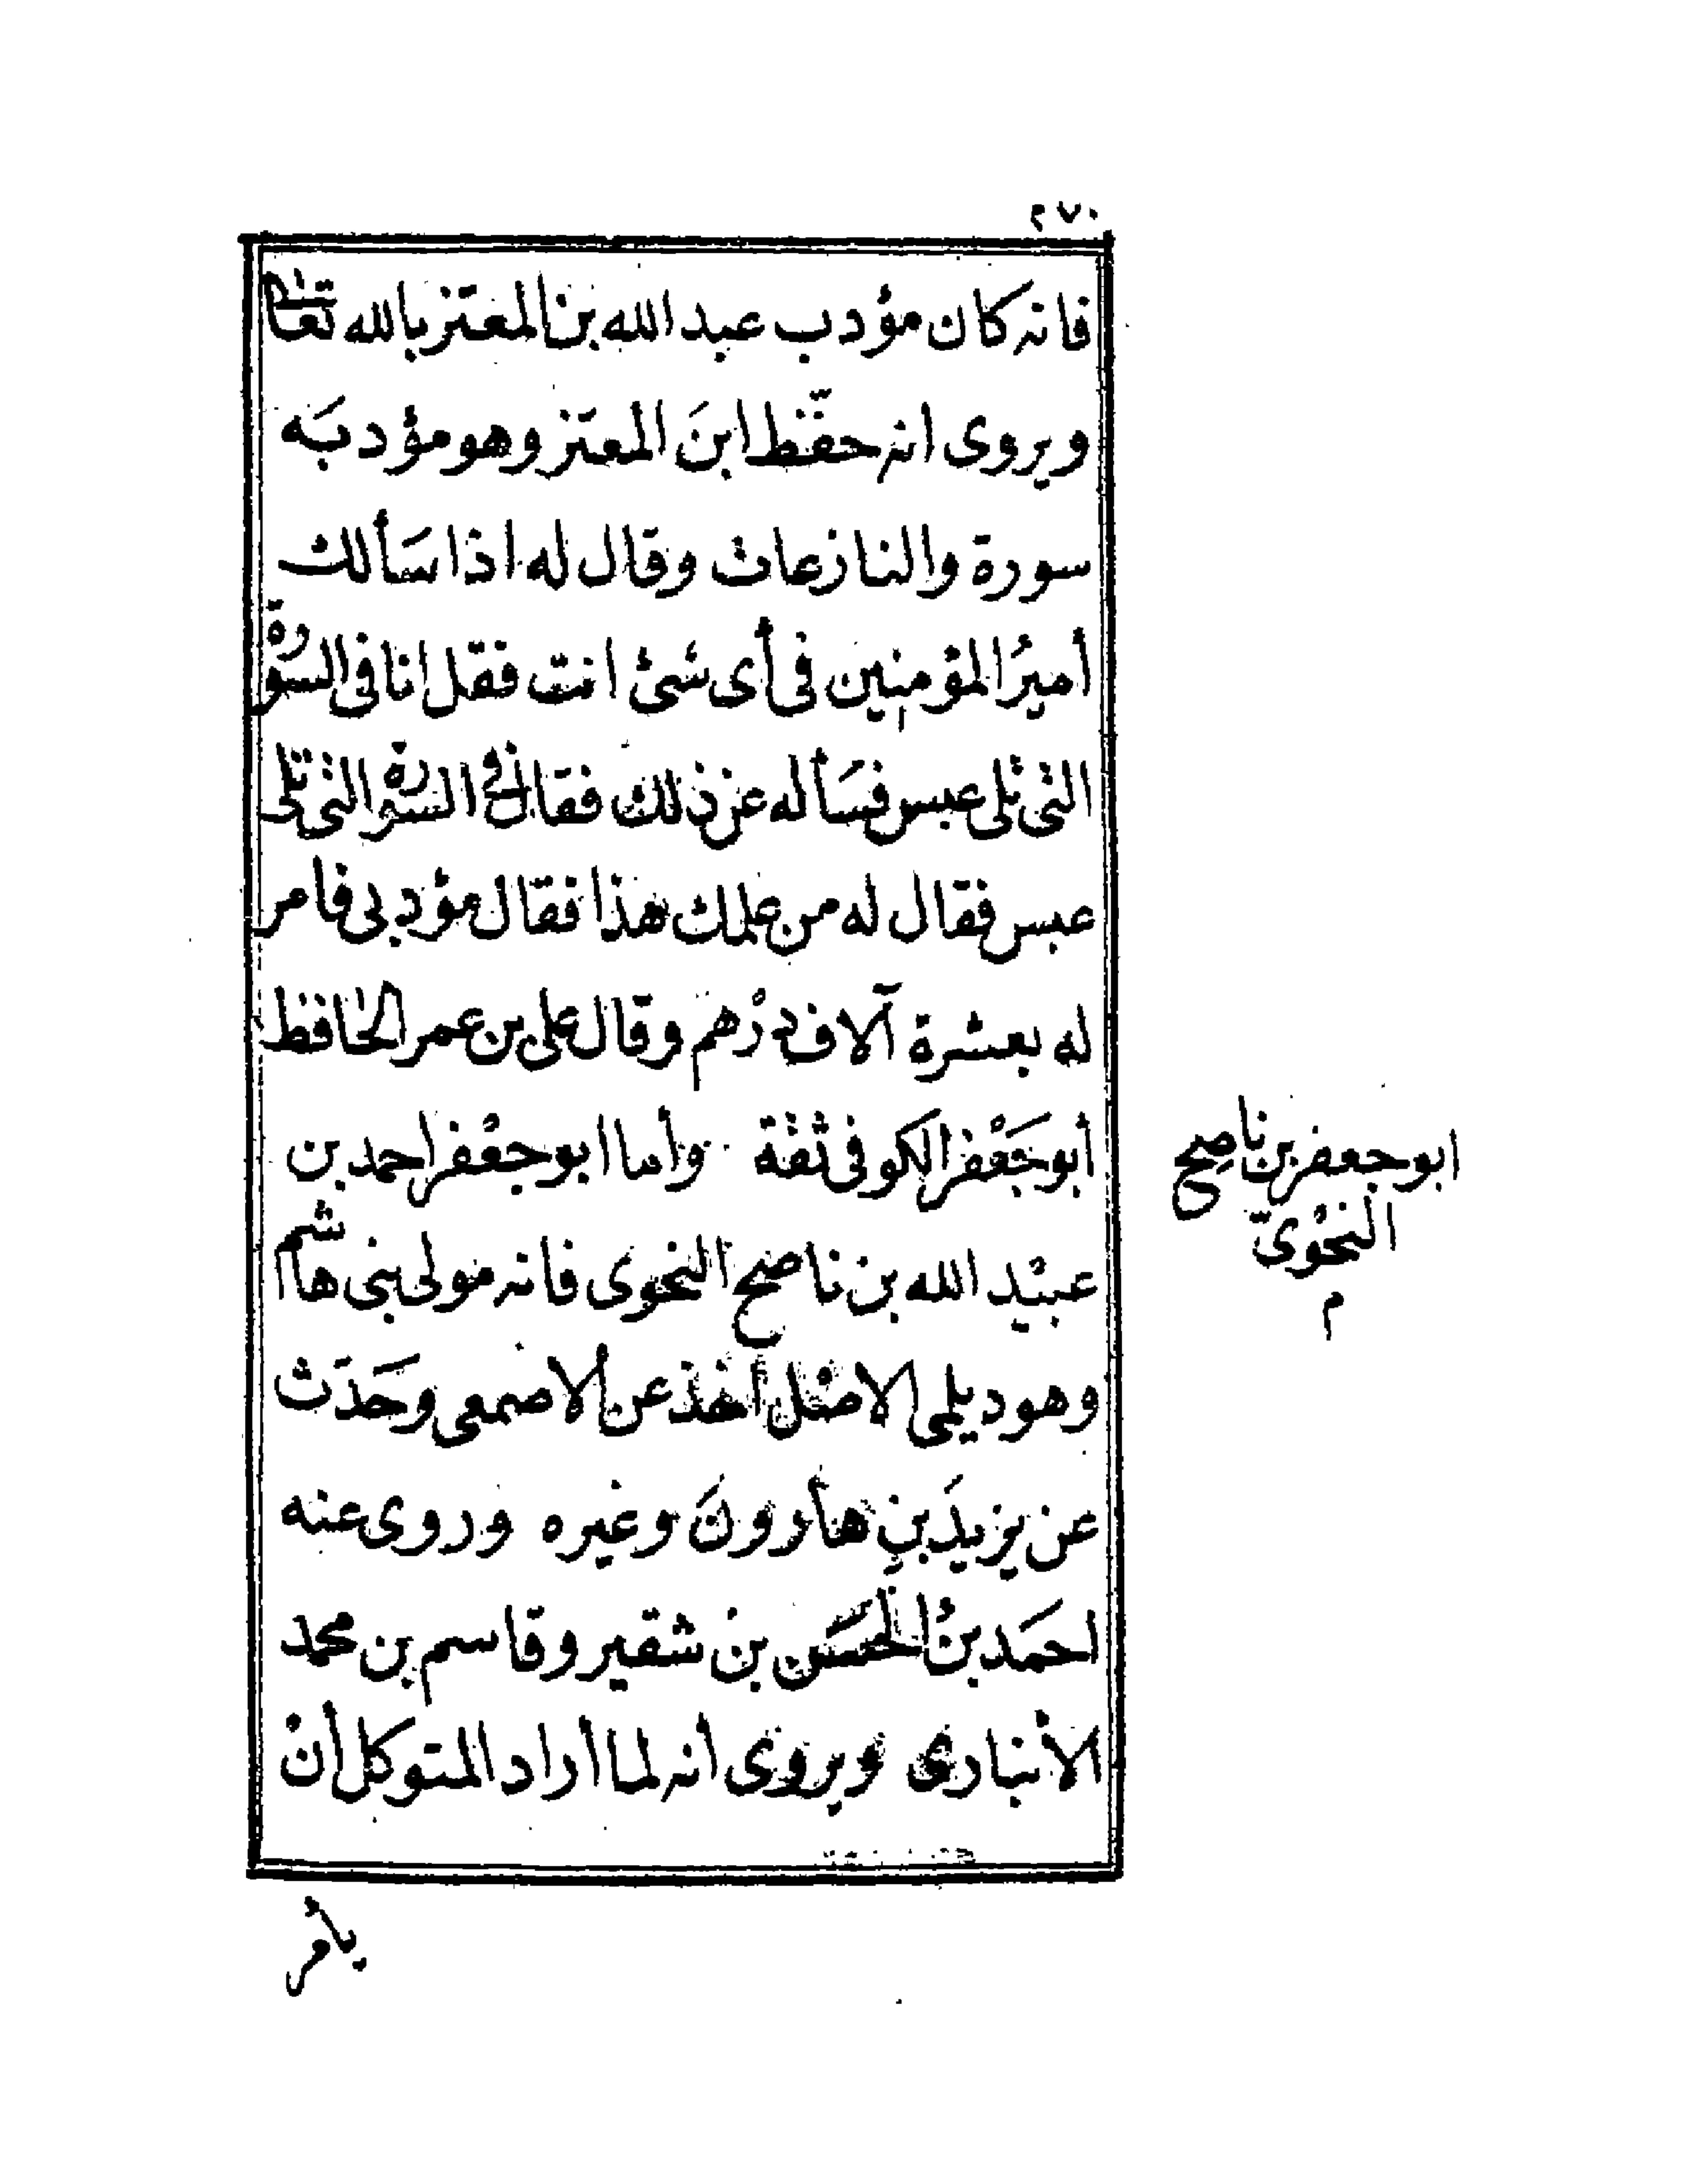 ٢٧٠
فانه كان مؤدب عبد الله بن المعتز بالله تعالى
ويروى انه حفّظ ابنَ المعتز وهو مؤدبَه
سورة والنازعات وقال له اذا سَألك
أميرُ المؤمنين فى أى شئ انت فقل انا فى السورة
التى تلى عبس فسَأله عن ذلك فقال فى السورة التى تلى
عبس فقال له من علمك هذا فقال مؤدبى فامر
له بعشرة آلاف درْهم وقال على بن عمر الحافظ
أبو جَعْفر الكوفى ثقة وأما ابو جعْفر احمد بن
عبيْد الله بن ناصح النحوى فانه مولى بنى هاشم
وهو ديلمى الاصْل أخذ عن الاصمعى وحَدَث
عن يزيدَ بنِ هارونَ وغيره وروى عنه
احمَد بنُ الحسَن بن شقير وقاسم بن محمد
الأنبارى ويروى انه لما أراد المتوكل أنْ
ابو جعفر بن ناصِح
النحْوىّ
م
يأمر